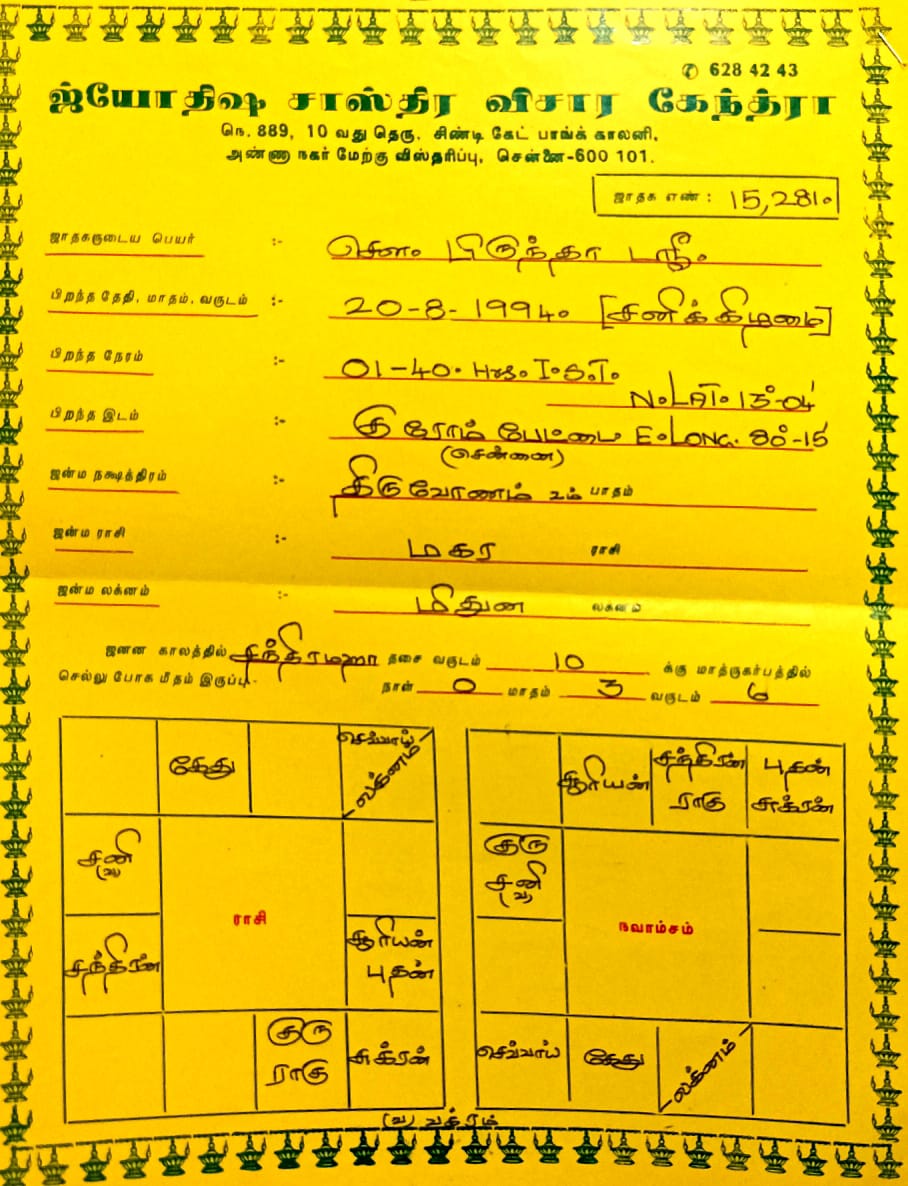 ✆ 628 42 43
ஜ்யோதிஷ சாஸ்திர விசார கேந்த்ரா
நெ. 889, 10 வது தெரு, சிண்டி கேட் பாங்க் காலனி,
அண்ணா நகர் மேற்கு விஸ்தரிப்பு, சென்னை-600 101.
ஜாதக எண் : 15,281.
ஜாதகருடைய பெயர் :- சௌ. பிருந்தா ஸ்ரீ.
பிறந்த தேதி, மாதம், வருடம் :- 20-8-1994. [சனிக்கிழமை]
பிறந்த நேரம் :- 01-40. Hrs. I.S.T.
N.LAT. 13°-04'
பிறந்த இடம் :- குரோம்பேட்டை E.LONG. 80°-15'
(சென்னை)
ஜன்ம நக்ஷத்திரம் :- திருவோணம் 2ம் பாதம்
ஜன்ம ராசி :- மகர ராசி
ஜன்ம லக்னம் :- மிதுன லக்னம்
ஜனன காலத்தில் சந்திரமஹா தசை வருடம் 10 க்கு மாத்ருகர்பத்தில்
செல்லு போக மீதம் இருப்பு:- நாள் 0 மாதம் 3 வருடம் 6
கேது
செவ்வாய்
லக்னம்
சனி
(வ)
ராசி
சந்திரன்
சூரியன்
புதன்
குரு
ராகு
சுக்ரன்
சூரியன்
சந்திரன்
ராகு
புதன்
சுக்ரன்
குரு
சனி
(வ)
நவாம்சம்
செவ்வாய்
கேது
லக்னம்
(வ) வக்ரம்